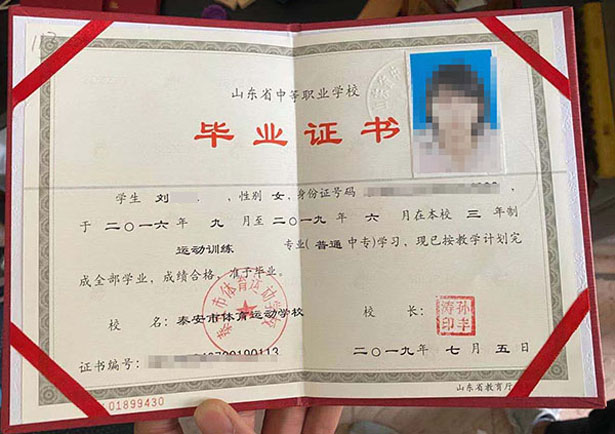 山东省中等职业学校
毕业证书
学生 刘 ，性别 女，身份证号码
于 二〇一六 年 九 月至 二〇一九 年 六 月在本校 三 年制
运动训练 专业（普通中专）学习，现已按教学计划完
成全部学业，成绩合格，准予毕业。
校 名：泰安市体育运动学校 校 长：
泰安市体育运动学校
证书编号：
二〇一九年 七 月 五 日
01899430
山东省教育厅